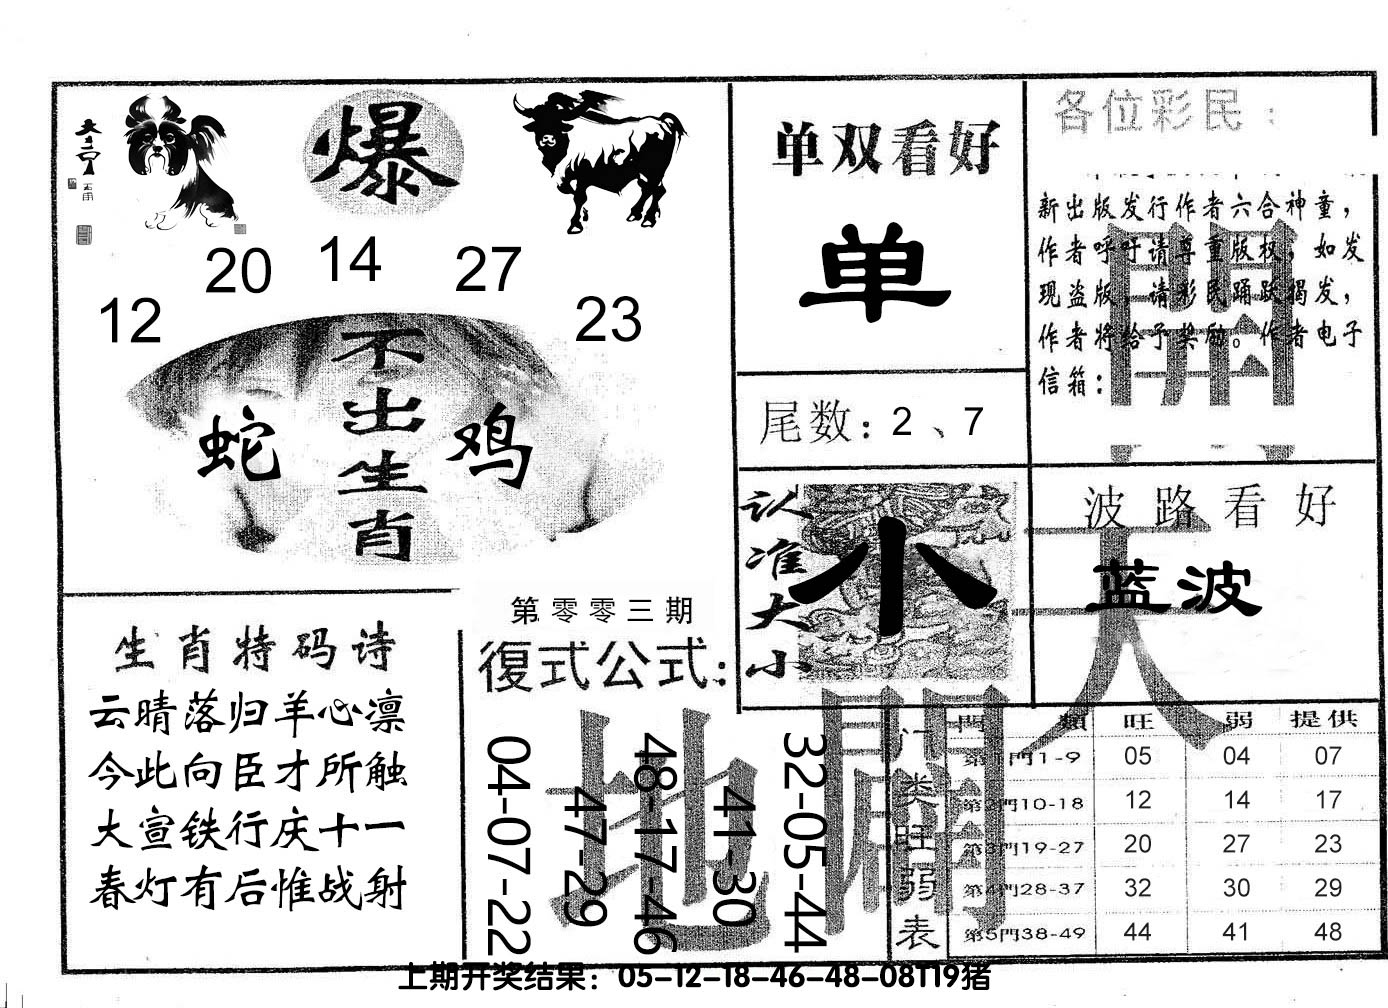 爆
20 14 27
12 23
不出生肖
蛇 鸡
单双看好
单
尾数：2、7
各位彩民：
新出版发行作者六合神童，
作者呼吁请尊重版权，如发
现盗版，请彩民踊跃揭发，
作者将给予奖励。作者电子
信箱：
開
认准大小
小
波路看好
蓝波
天
生肖特码诗
云晴落归羊心凛
今此向臣才所触
大宣铁行庆十一
春灯有后惟战射
第零零三期
復式公式：
04-07-22
47-29
48-17-46
41-30
32-05-44
地
開
门类旺弱表
門類 旺 弱 提供
第1門1-9 05 04 07
第2門10-18 12 14 17
第3門19-27 20 27 23
第4門28-37 32 30 29
第5門38-49 44 41 48
上期开奖结果：05-12-18-46-48-08T19猪